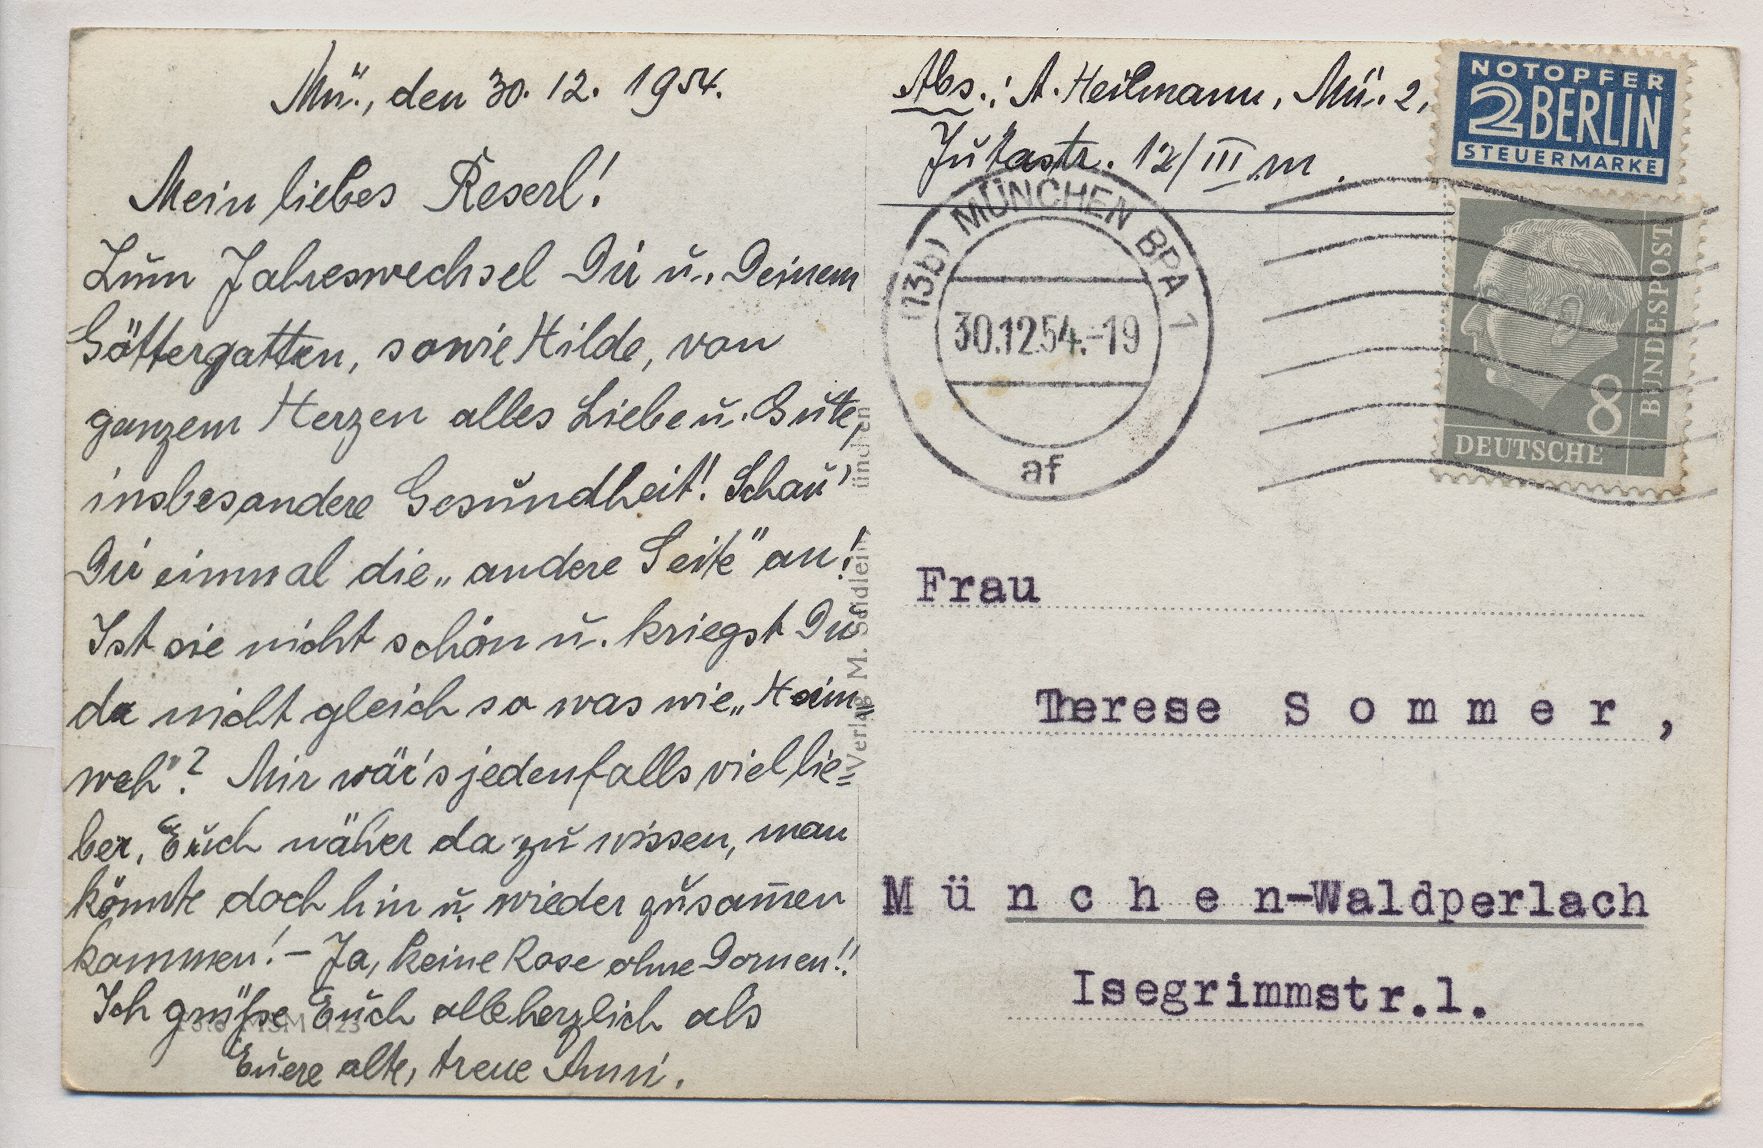 Mü., den 30. 12. 1954.
Mein liebes Reserl!
Zum Jahreswechsel Dir u. Deinem
Göttergatten, sowie Hilde, von
ganzem Herzen alles Liebe u. Gute,
insbesondere Gesundheit! Schau'
Dir einmal die „andere Seite" an!
Ist sie nicht schön u. kriegst Du
da nicht gleich so was wie „Heim=
weh"? Mir wär's jedenfalls viel lie=
ber, Euch näher da zu wissen, man
könnte doch hin u. wieder zusam̅en
kommen! – Ja, keine Rose ohne Dornen!!
Ich grüße Euch alle herzlich als
Euere alte, treue Anni.
Verlag M. Seidlein, München
MSM 123
Abs.: A. Heilmann, Mü. 2,
Jutastr. 12/III m.
NOTOPFER
2 BERLIN
STEUERMARKE
(13b) MÜNCHEN BPA 1
30.12.54.-19
af
8
DEUTSCHE
BUNDESPOST
Frau
Therese S o m m e r ,
M ü n c h e n-Waldperlach
Isegrimmstr.1.